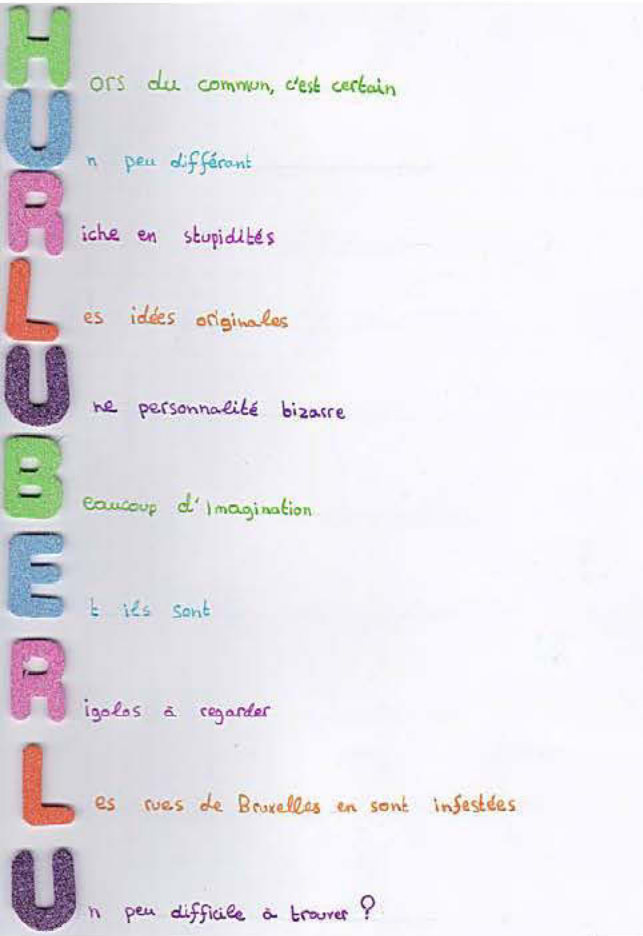 Hors du commun, c'est certain
Un peu différant
Riche en stupidités
Les idées originales
Une personnalité bizarre
Beaucoup d'imagination
Et ils sont
Rigolos à regarder
Les rues de Bruxelles en sont infestées
Un peu difficile à trouver ?